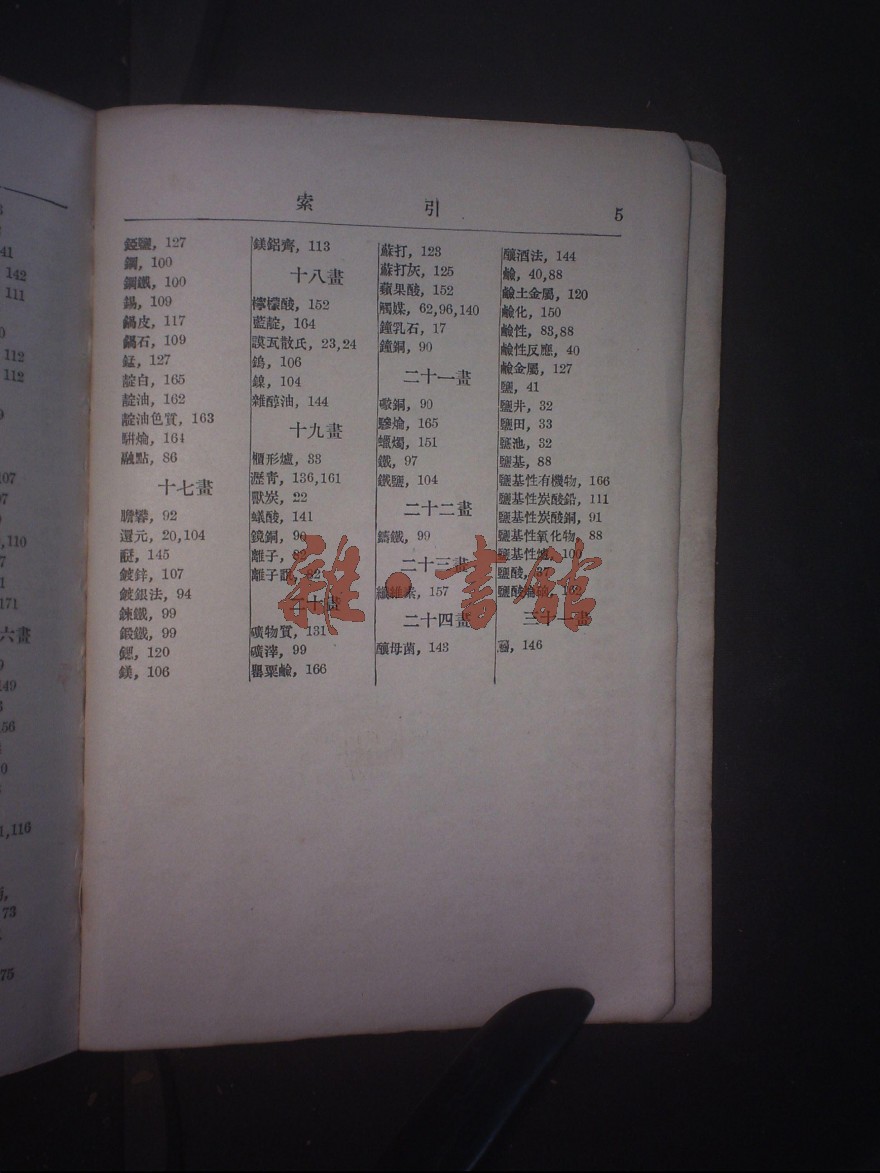 索引 5
錏鹽, 127
鋼, 100
鋼鐵, 100
錫, 109
錫皮, 117
錫石, 109
錳, 127
靛白, 165
靛油, 162
靛油色質, 163
駢烚, 164
融點, 86
十七畫
膽礬, 92
還元, 20,104
醚, 145
鍍鋅, 107
鍍銀法, 94
鍊鐵, 99
鍛鐵, 99
鍶, 120
鎂, 106
鎂鋁齊, 113
十八畫
檸檬酸, 152
藍靛, 164
謨瓦散氏, 23,24
鎢, 106
鎳, 104
雜醇油, 144
十九畫
櫃形爐, 33
瀝青, 136,161
獸炭, 22
蟻酸, 141
鏡銅, 90
離子, 82
離子說, 82
二十畫
礦物質, 131
礦滓, 99
罌粟鹼, 166
蘇打, 123
蘇打灰, 125
蘋果酸, 152
觸媒, 62,96,140
鐘乳石, 17
鐘銅, 90
二十一畫
礮銅, 90
驂烚, 165
蠟燭, 151
鐵, 97
鐵鹽, 104
二十二畫
鑄鐵, 99
二十三畫
纖維素, 157
二十四畫
釀母菌, 143
釀酒法, 144
鹼, 40,88
鹼土金屬, 120
鹼化, 150
鹼性, 83,88
鹼性反應, 40
鹼金屬, 127
鹽, 41
鹽井, 32
鹽田, 33
鹽池, 32
鹽基, 88
鹽基性有機物, 166
鹽基性炭酸鉛, 111
鹽基性炭酸銅, 91
鹽基性氧化物, 88
鹽基性, 100
鹽酸, 37
鹽酸, 162
三十一畫
146
雜·書館
1
142
111
112
112
107
110
171
六畫
149
156
1,116
73
75